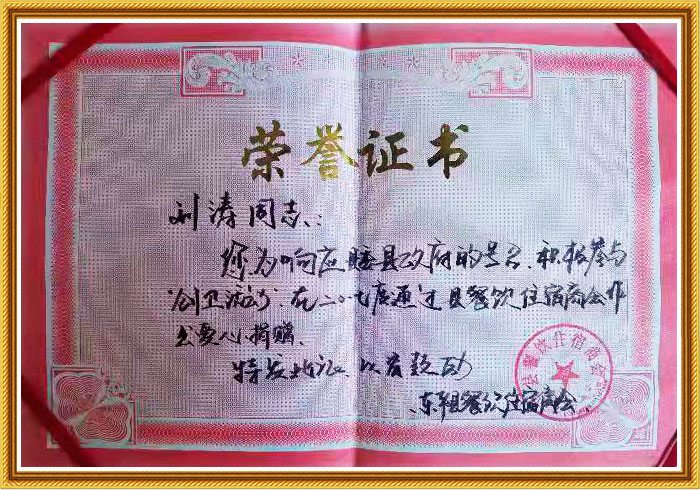 荣誉证书
刘涛同志：
您为响应睢县政府的号召，积极参与
“创卫活动”在二〇一七年度通过县餐饮住宿商会作
出爱心捐赠。
特发此证，以资鼓励
县餐饮住宿商会